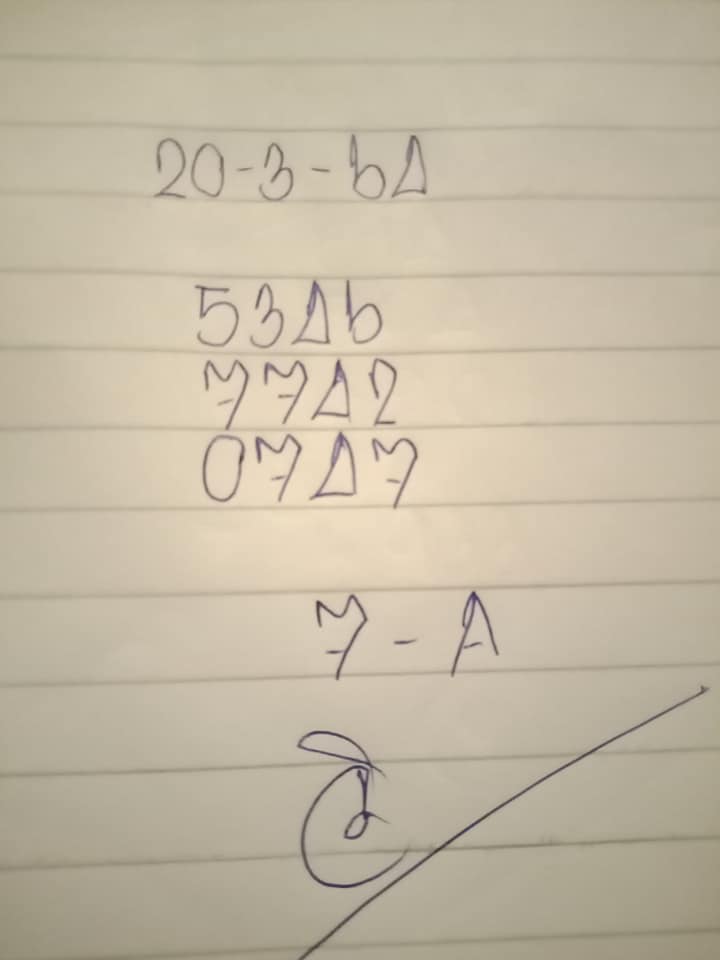 20-3-bΔ
53Δb
77Δ2
07Δ7
7-A